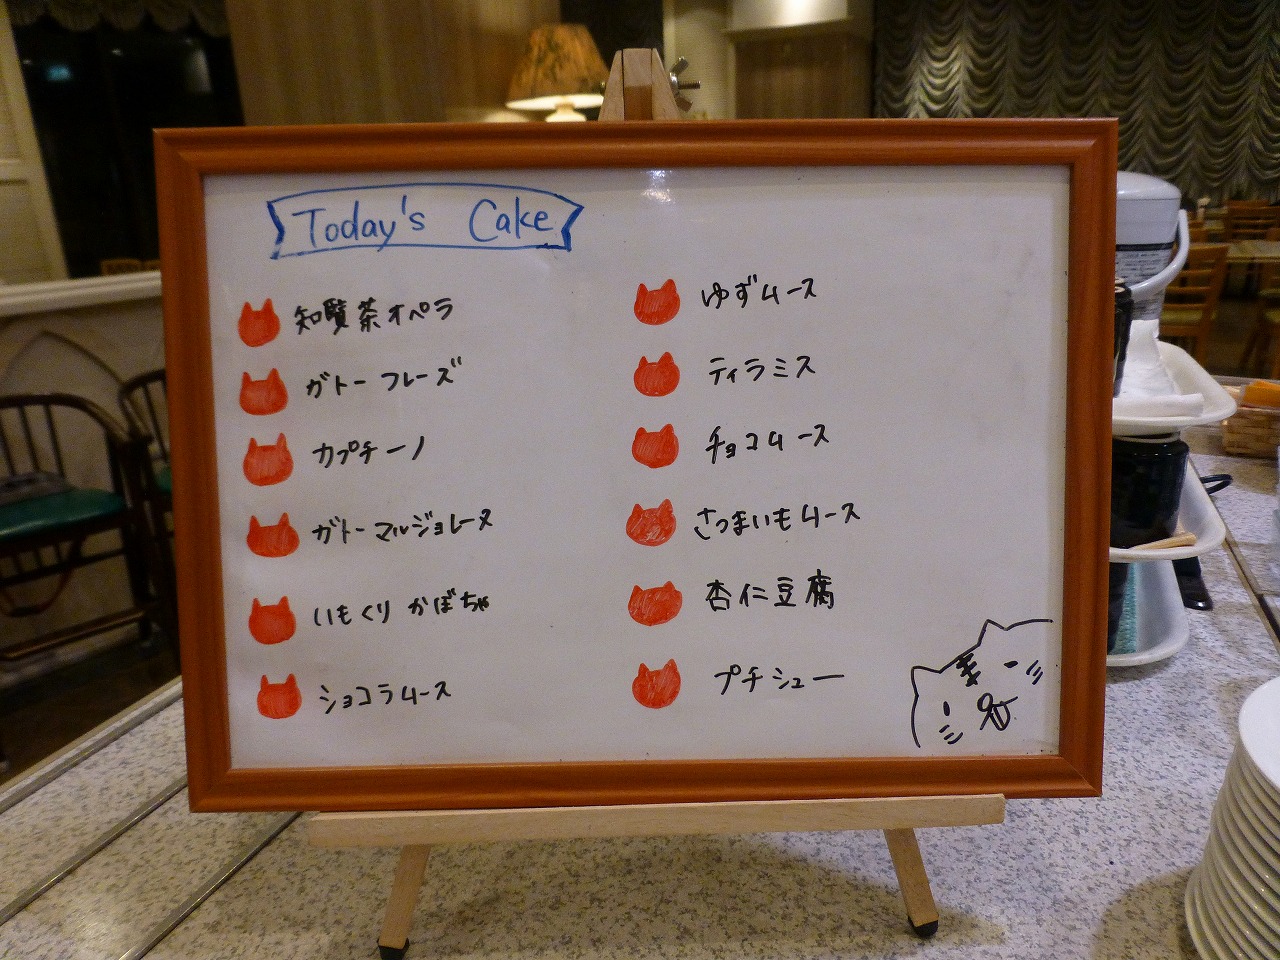 Today's Cake
知覧茶オペラ
ガトーフレーズ
カプチーノ
ガトーマルジョレーヌ
いもくりかぼちゃ
ショコラムース
ゆずムース
ティラミス
チョコムース
さつまいもムース
杏仁豆腐
プチシュー